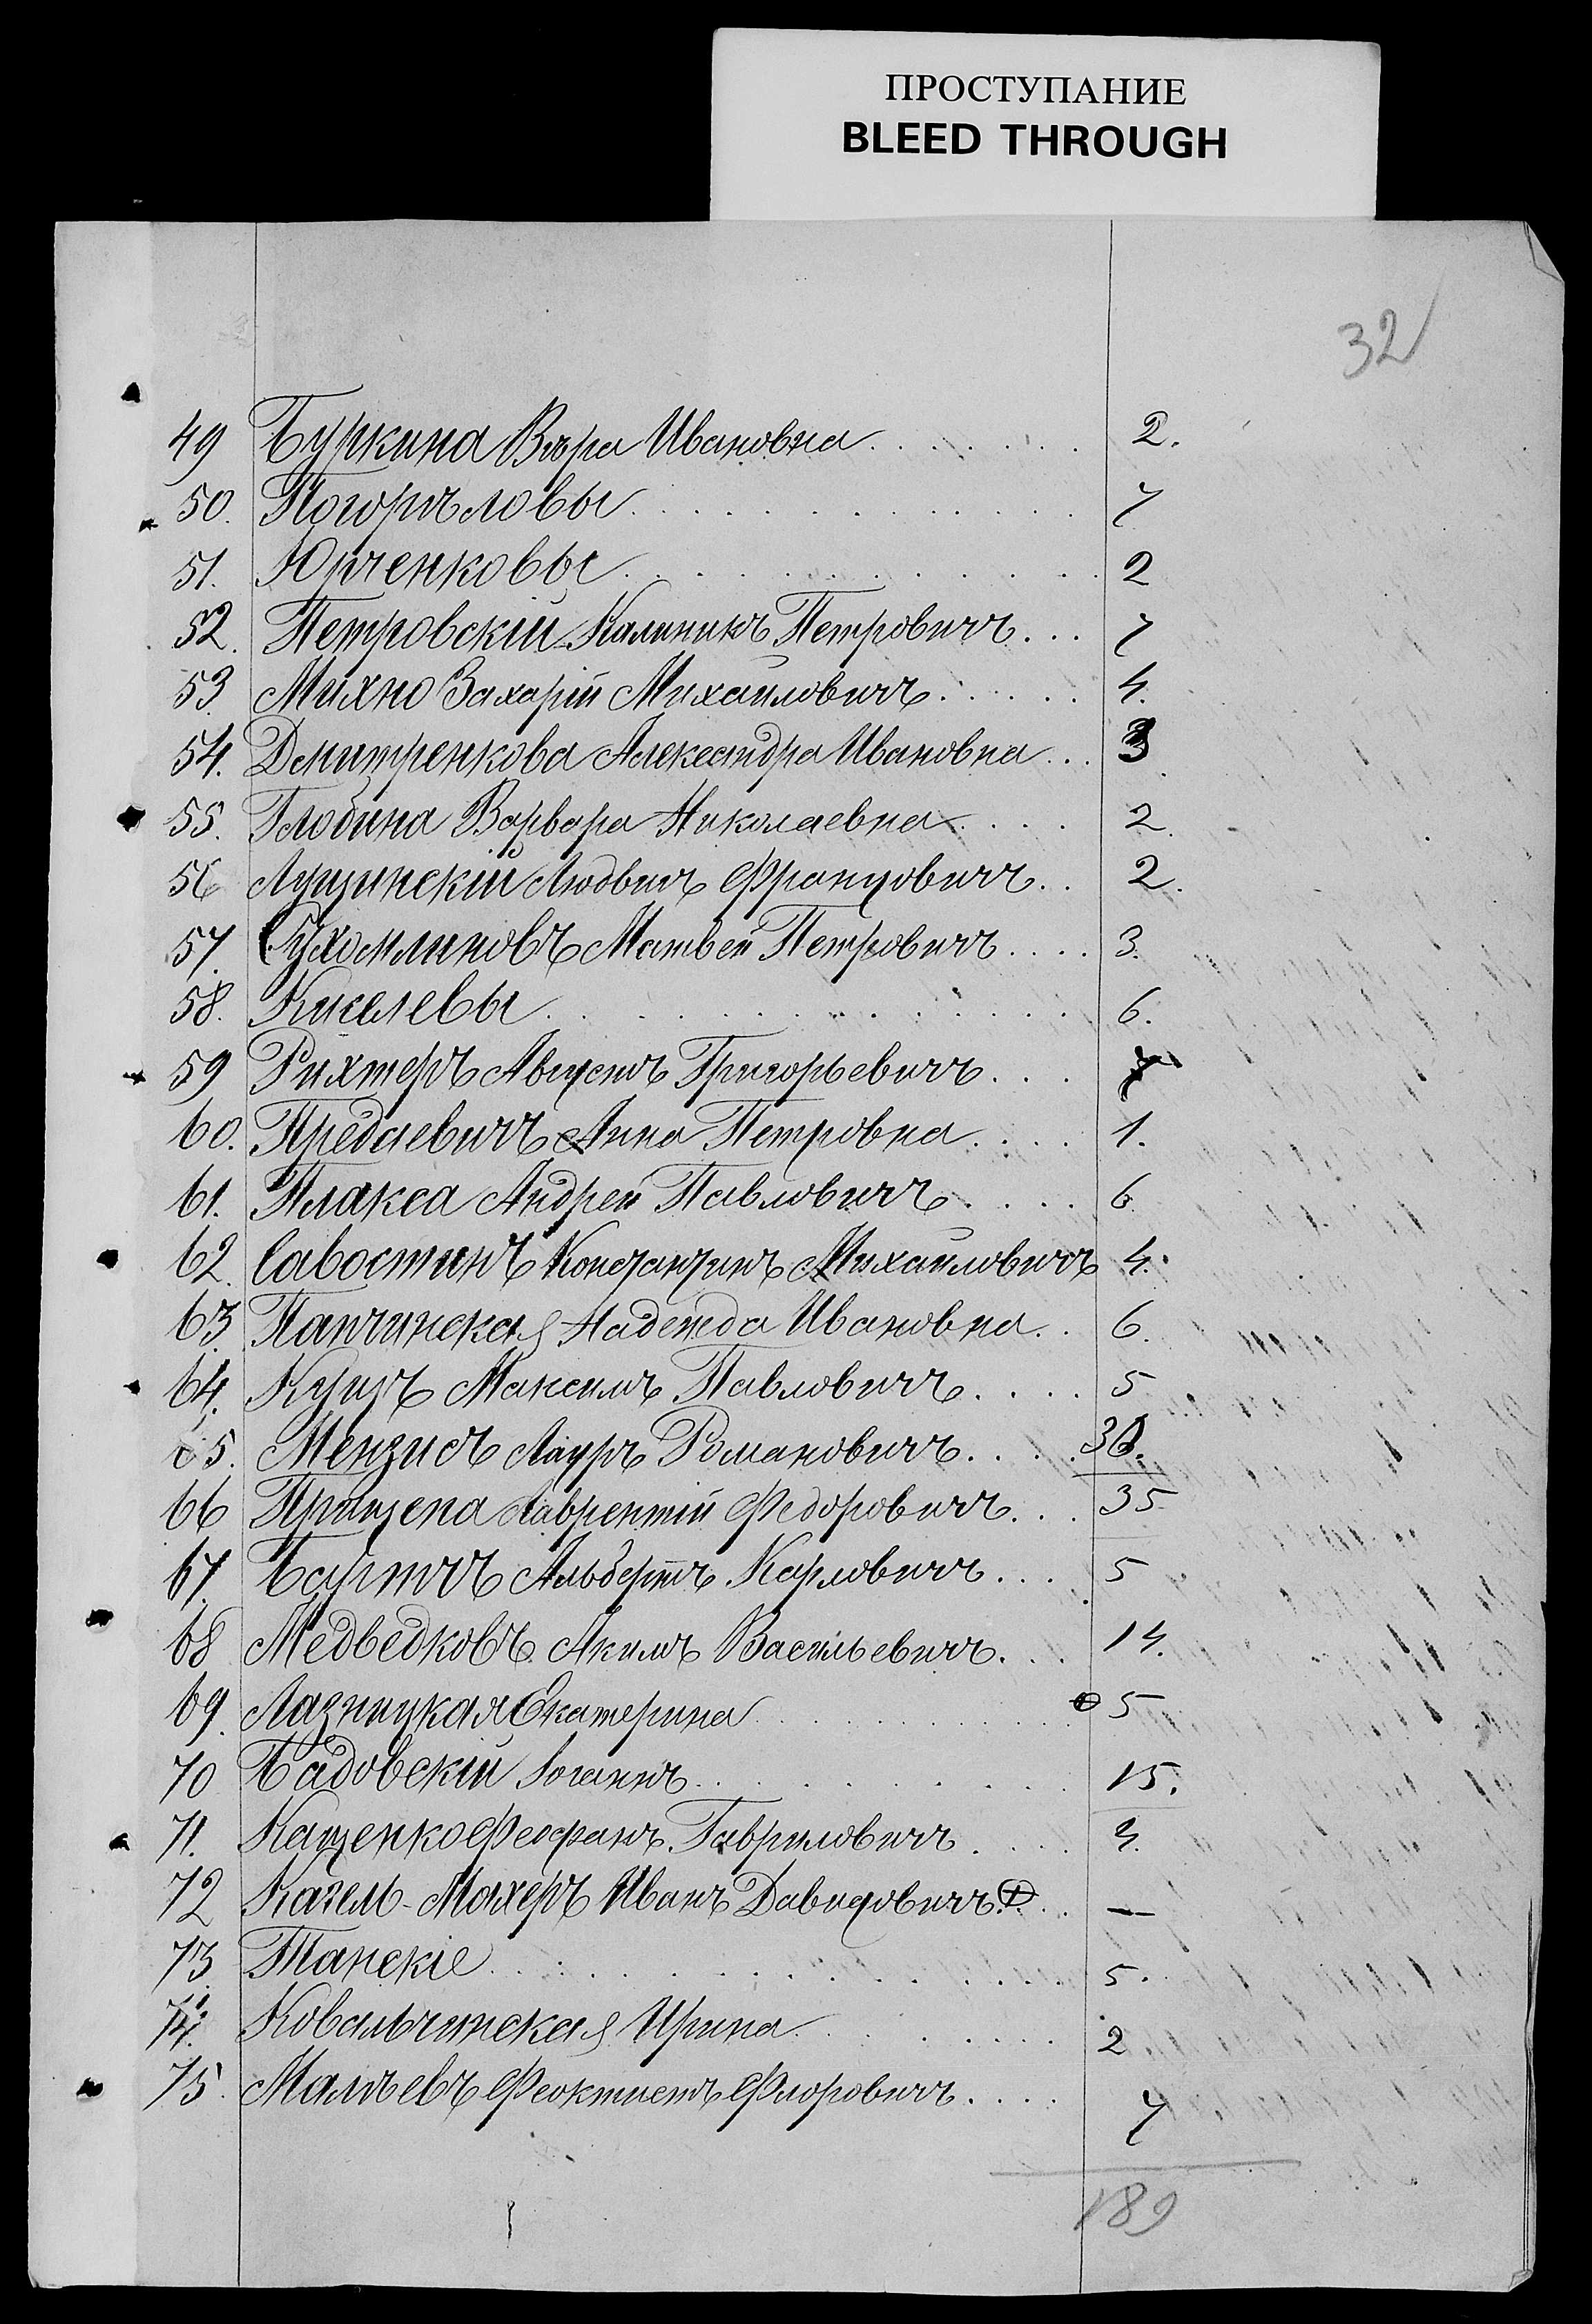 ПРОСТУПАНИЕ
BLEED THROUGH
32
49 Буркина Вѣра Ивановна . . . . . . . 2.
50. Погорѣловы . . . . . . . . . . . . 7
51. Юрченковы . . . . . . . . . . . . 2
52. Петровскій Калиникъ Петровичъ . . . 7
53. Михно Захарій Михайловичъ . . . . . 4.
54. Дмитренкова Александра Ивановна . . . 3
55. Глобина Варвара Николаевна . . . . 2.
56 Лущинскій Людвигъ Францовичъ . . 2.
57. Сухомлиновъ Матвей Петровичъ . . . . 3.
58. Киселевы . . . . . . . . . . . . 6.
59 Рихтеръ Августъ Григорьевичъ . . . 7
60. Предаевичъ Анна Петровна . . . . 1.
61. Плакса Андрей Павловичъ . . . . 6
62. Савостинъ Константинъ Михайловичъ 4.
63. Панчинская Надежда Ивановна . . 6.
64. Кущъ Максимъ Павловичъ . . . . 5
65. Мензисъ Лауръ Романовичъ . . . . 30.
66 Прищепа Лаврентій Федоровичъ . . . 35
67. Альбертъ Карловичъ . . . 5
68 Медведковъ Акимъ Васильевичъ . . . 14.
69. Лазницкая Екатерина . . . . . . . . . 5
70 Бадовскій Іоганнъ . . . . . . . . . 15.
71. Кащенко Феофанъ Гавриловичъ . . . . 4.
72 Кагель-Махеръ Иванъ Давидовичъ . . . —
73. Танскіе . . . . . . . . . . . . 5.
74. Ковальчинская Ирина . . . . . . . 2
75. Малѣевъ Феоктистъ Флоровичъ . . . . 7
189